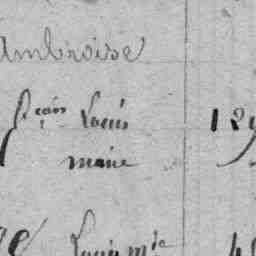 Ambroise
fçois Louis 129
marie
Louis mie